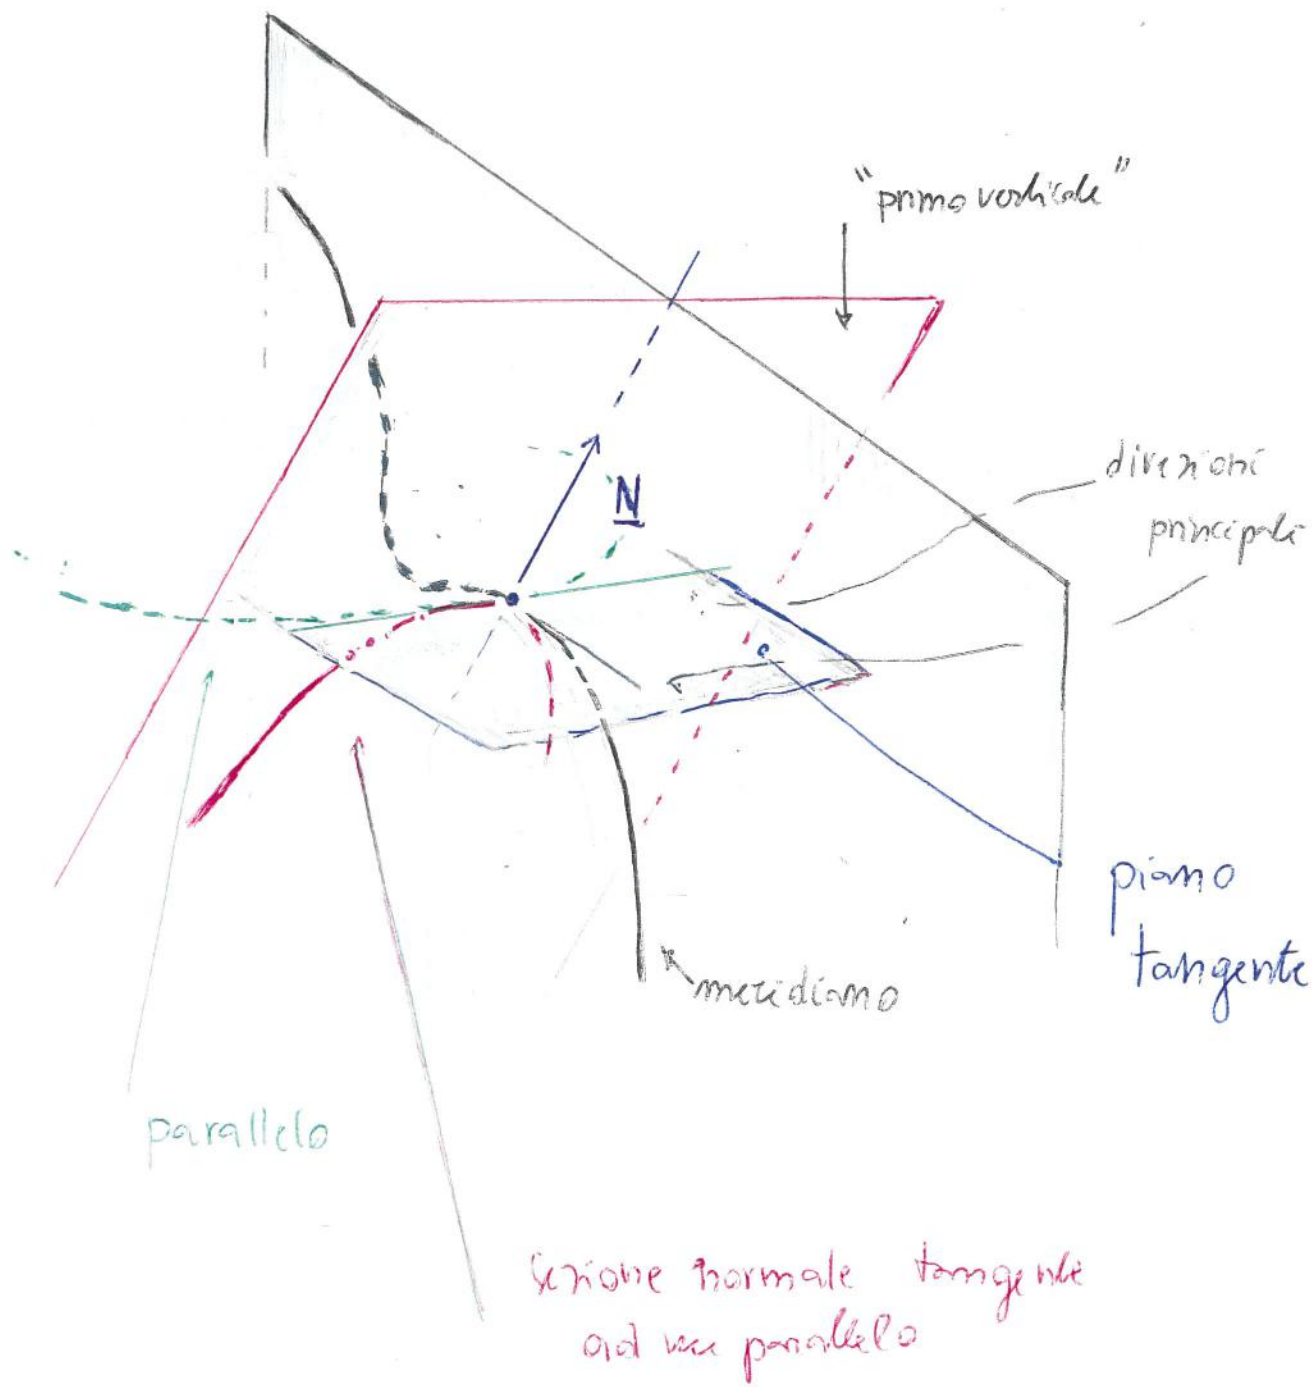 "primo verticale"
direzioni
principali
N
piano
tangente
meridiano
parallelo
sezione normale tangente
ad un parallelo